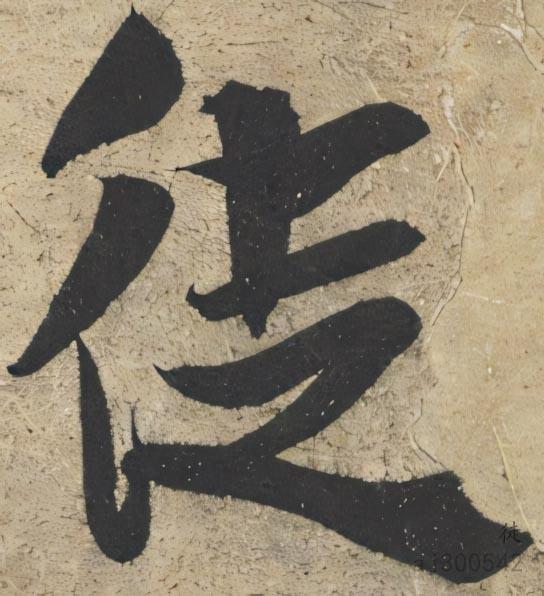 徒
徒
a1300542